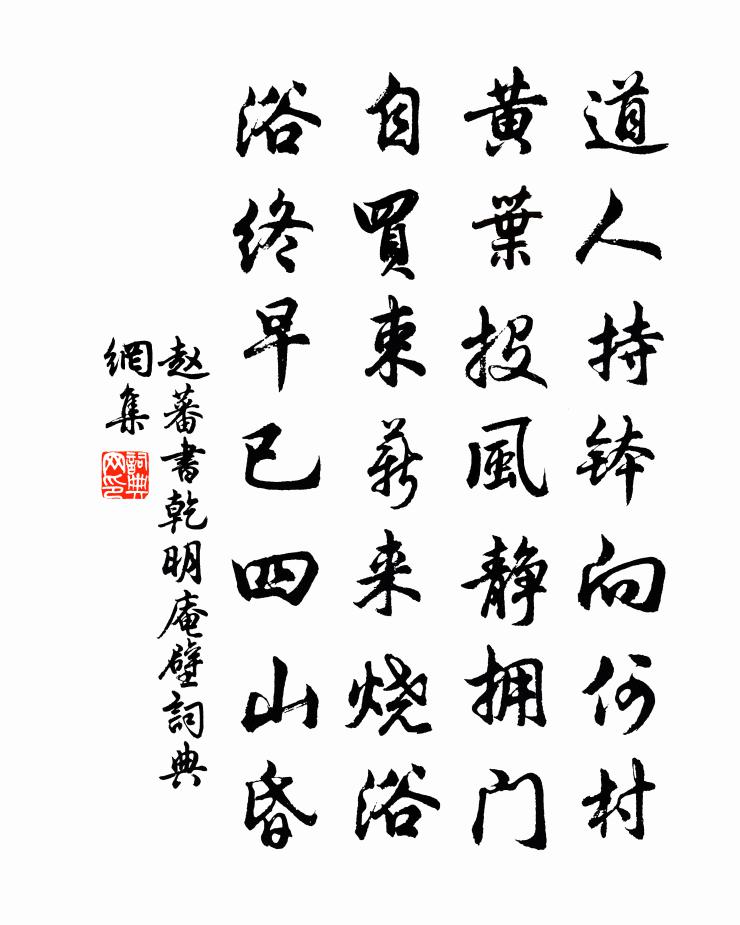 道人持钵向何村
黄葉投風静拥门
自買束薪来烧浴
浴终早已四山昏
赵蕃書乾明庵壁詞典
網集
詞典
网印